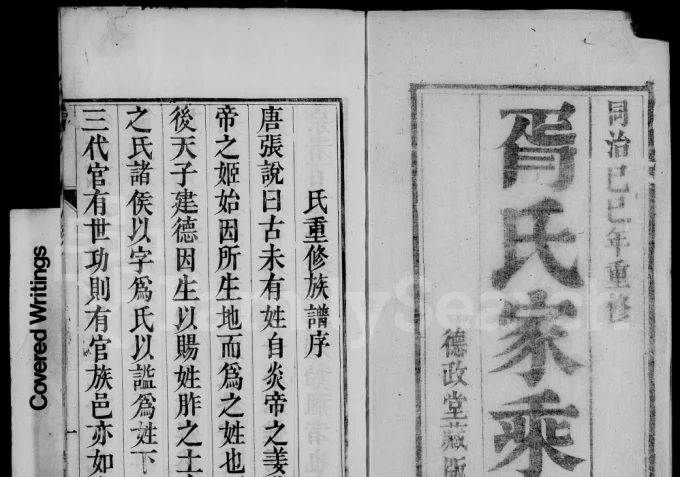 同治己巳年重修
胥氏家乘
德政堂藏版
氏重修族譜序
唐張說曰古未有姓自炎帝之姜
帝之姬始因所生地而爲之姓也
後天子建德因生以賜姓胙之土
之氏諸侯以字爲氏以諡爲姓下
三代官有世功則有官族邑亦如
一
Covered Writings
FamilySearch